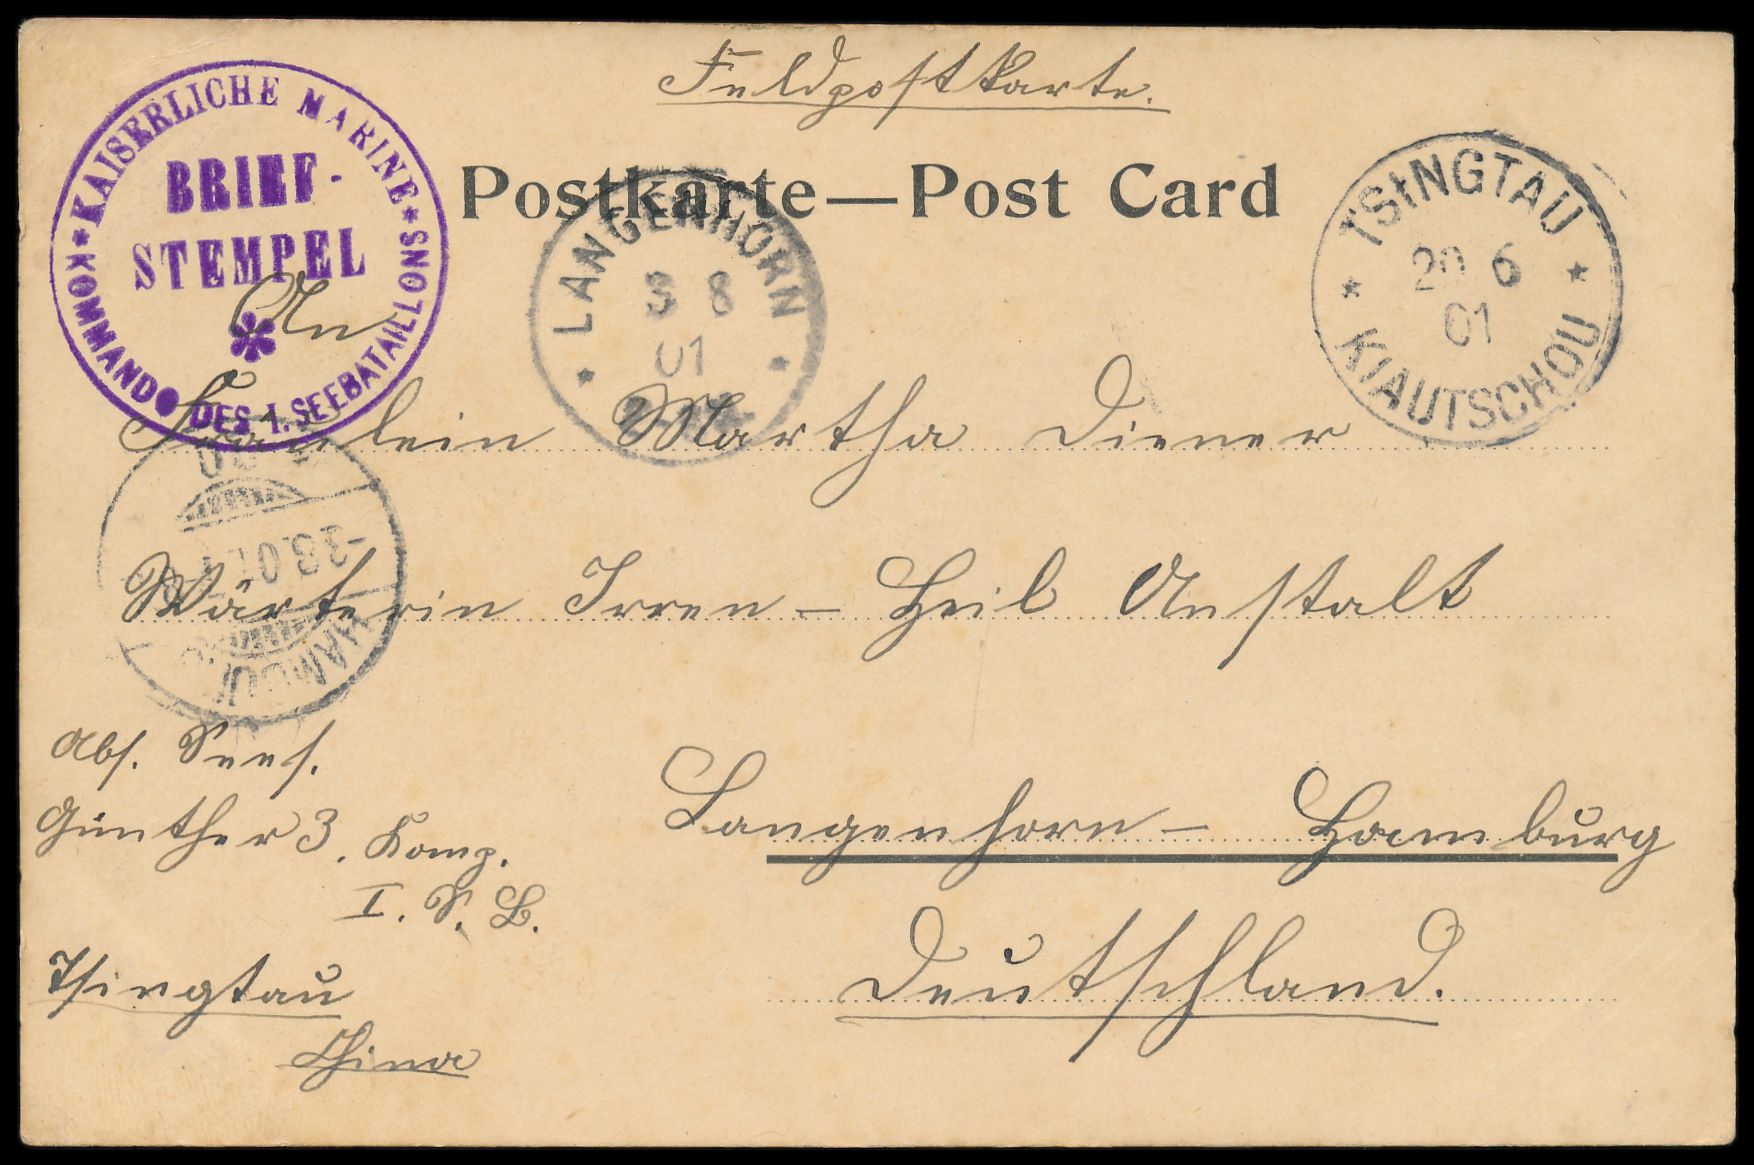 Feldpostkarte.
Postkarte—Post Card
* KAISERLICHE MARINE *
KOMMANDO DES I. SEEBATAILLONS
BRIEF-
STEMPEL
LANGENHORN
3 8
01
TSINGTAU
20 6
01
* KIAUTSCHOU *
An
Fräulein Martha Diener
Wärterin Irren-Heil Anstalt
-3.8.01.
HAMBURG
Langenhorn- Hamburg
Deutschland.
Abs. Sees.
Günther 3. Komp.
I. S. B.
Tsingtau
China